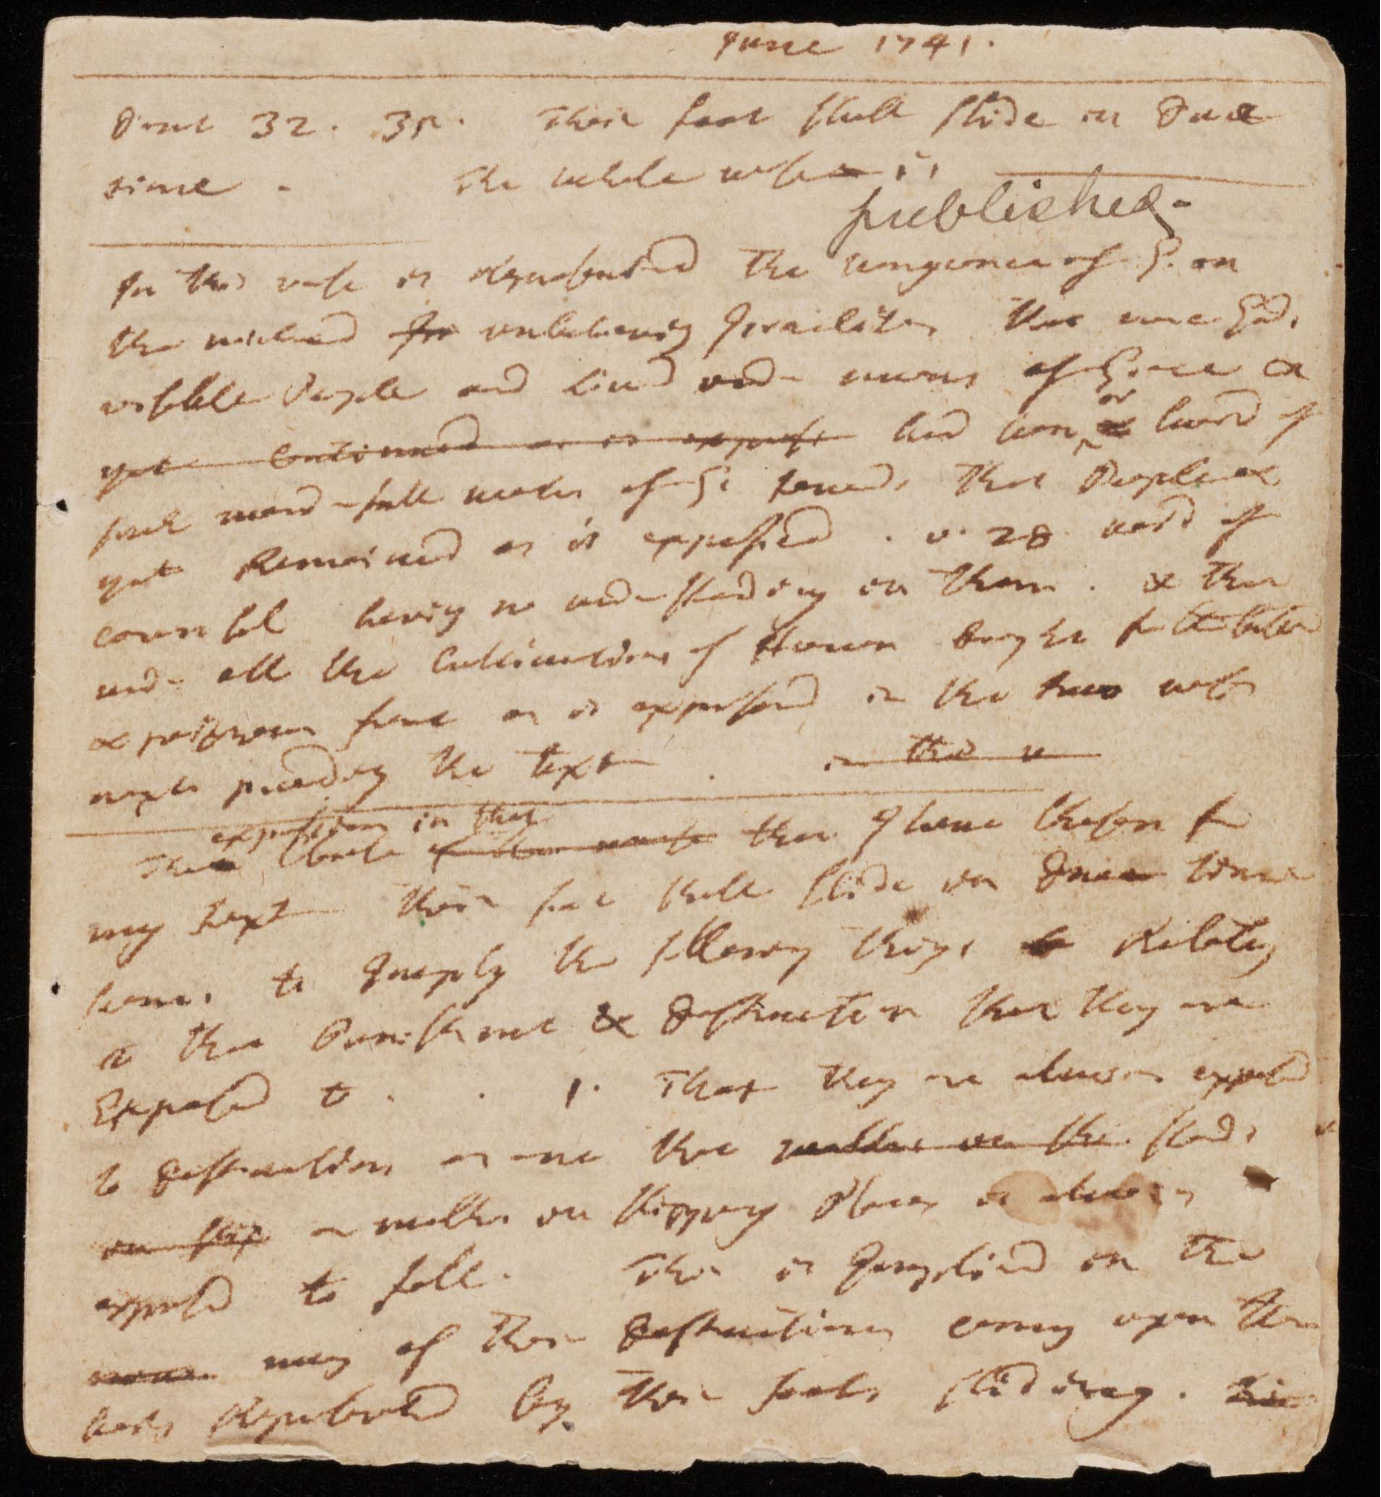 June 1741.
Deut 32. 35. Their foot shall slide in Due
time. The whole verse is
published.
In this verse is Represented the vengeance of G. on
the wicked unbelieving Israelites that were Gods
visible People and lived under means of Grace &
yet continued as is expresst had seen or heard of
such wonderfull works of G. towards that People &
yet Remained as is expressed. v. 28 void of
counsel having no understanding in them. & that
under all the Cultivations of Heaven brought forth bitter
& poisonous fruit as is expressed in the two verses
next preceding the text. in this v
expression in that
That I have chosen for
my text their foot shall slide in Due time
seems to Imply the following things Relating
to the Punishment & Destruction that they are
Exposed to. 1. That they are always exposed
to Destruction as one that walks on the stands
on slip or walks on slippery Places is always
exposed to fall. This is Implied in the
way of their Destructions coming upon them
being Represented by their foots sliding.